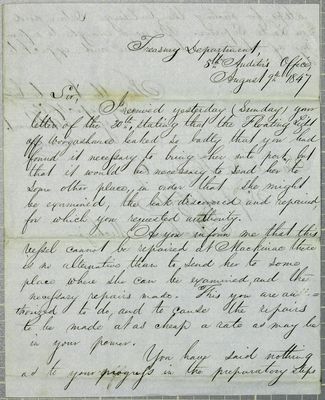 Treasury Department,
5th Auditor's Office
August 9th 1847
Sir,
I received yesterday (Sunday) your
letter of the 30th, stating that the Floating Light
off Waugashance leaked so badly that you had
found it necessary to bring her into port, but
that it would be necessary to send her to
some other place, in order that she might
be examined, the leak discovered and repaired
for which you requested authority.
As you inform me that this
vessel cannot be repaired at Mackinac there
is no alternative than to send her to some
place where she can be examined, and the
necessary repairs made. This you are au-
thorized to do, and to cause the repairs
to be made at as cheap a rate as may be
in your power.
You have said nothing
as to your progress in the preparatory steps